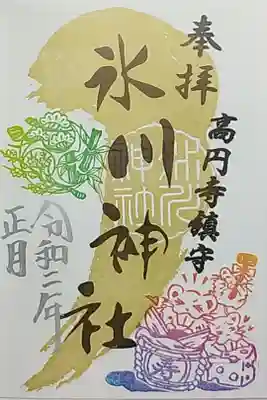 奉拝
高円寺鎮守
氷川神社
令和二年
正月